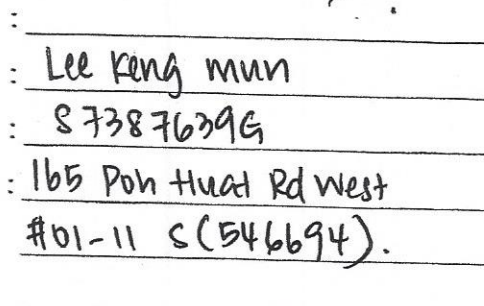 :
: Lee Keng mun
: S7387639G
: 165 Poh Huat Rd West
#01-11 S(546694).